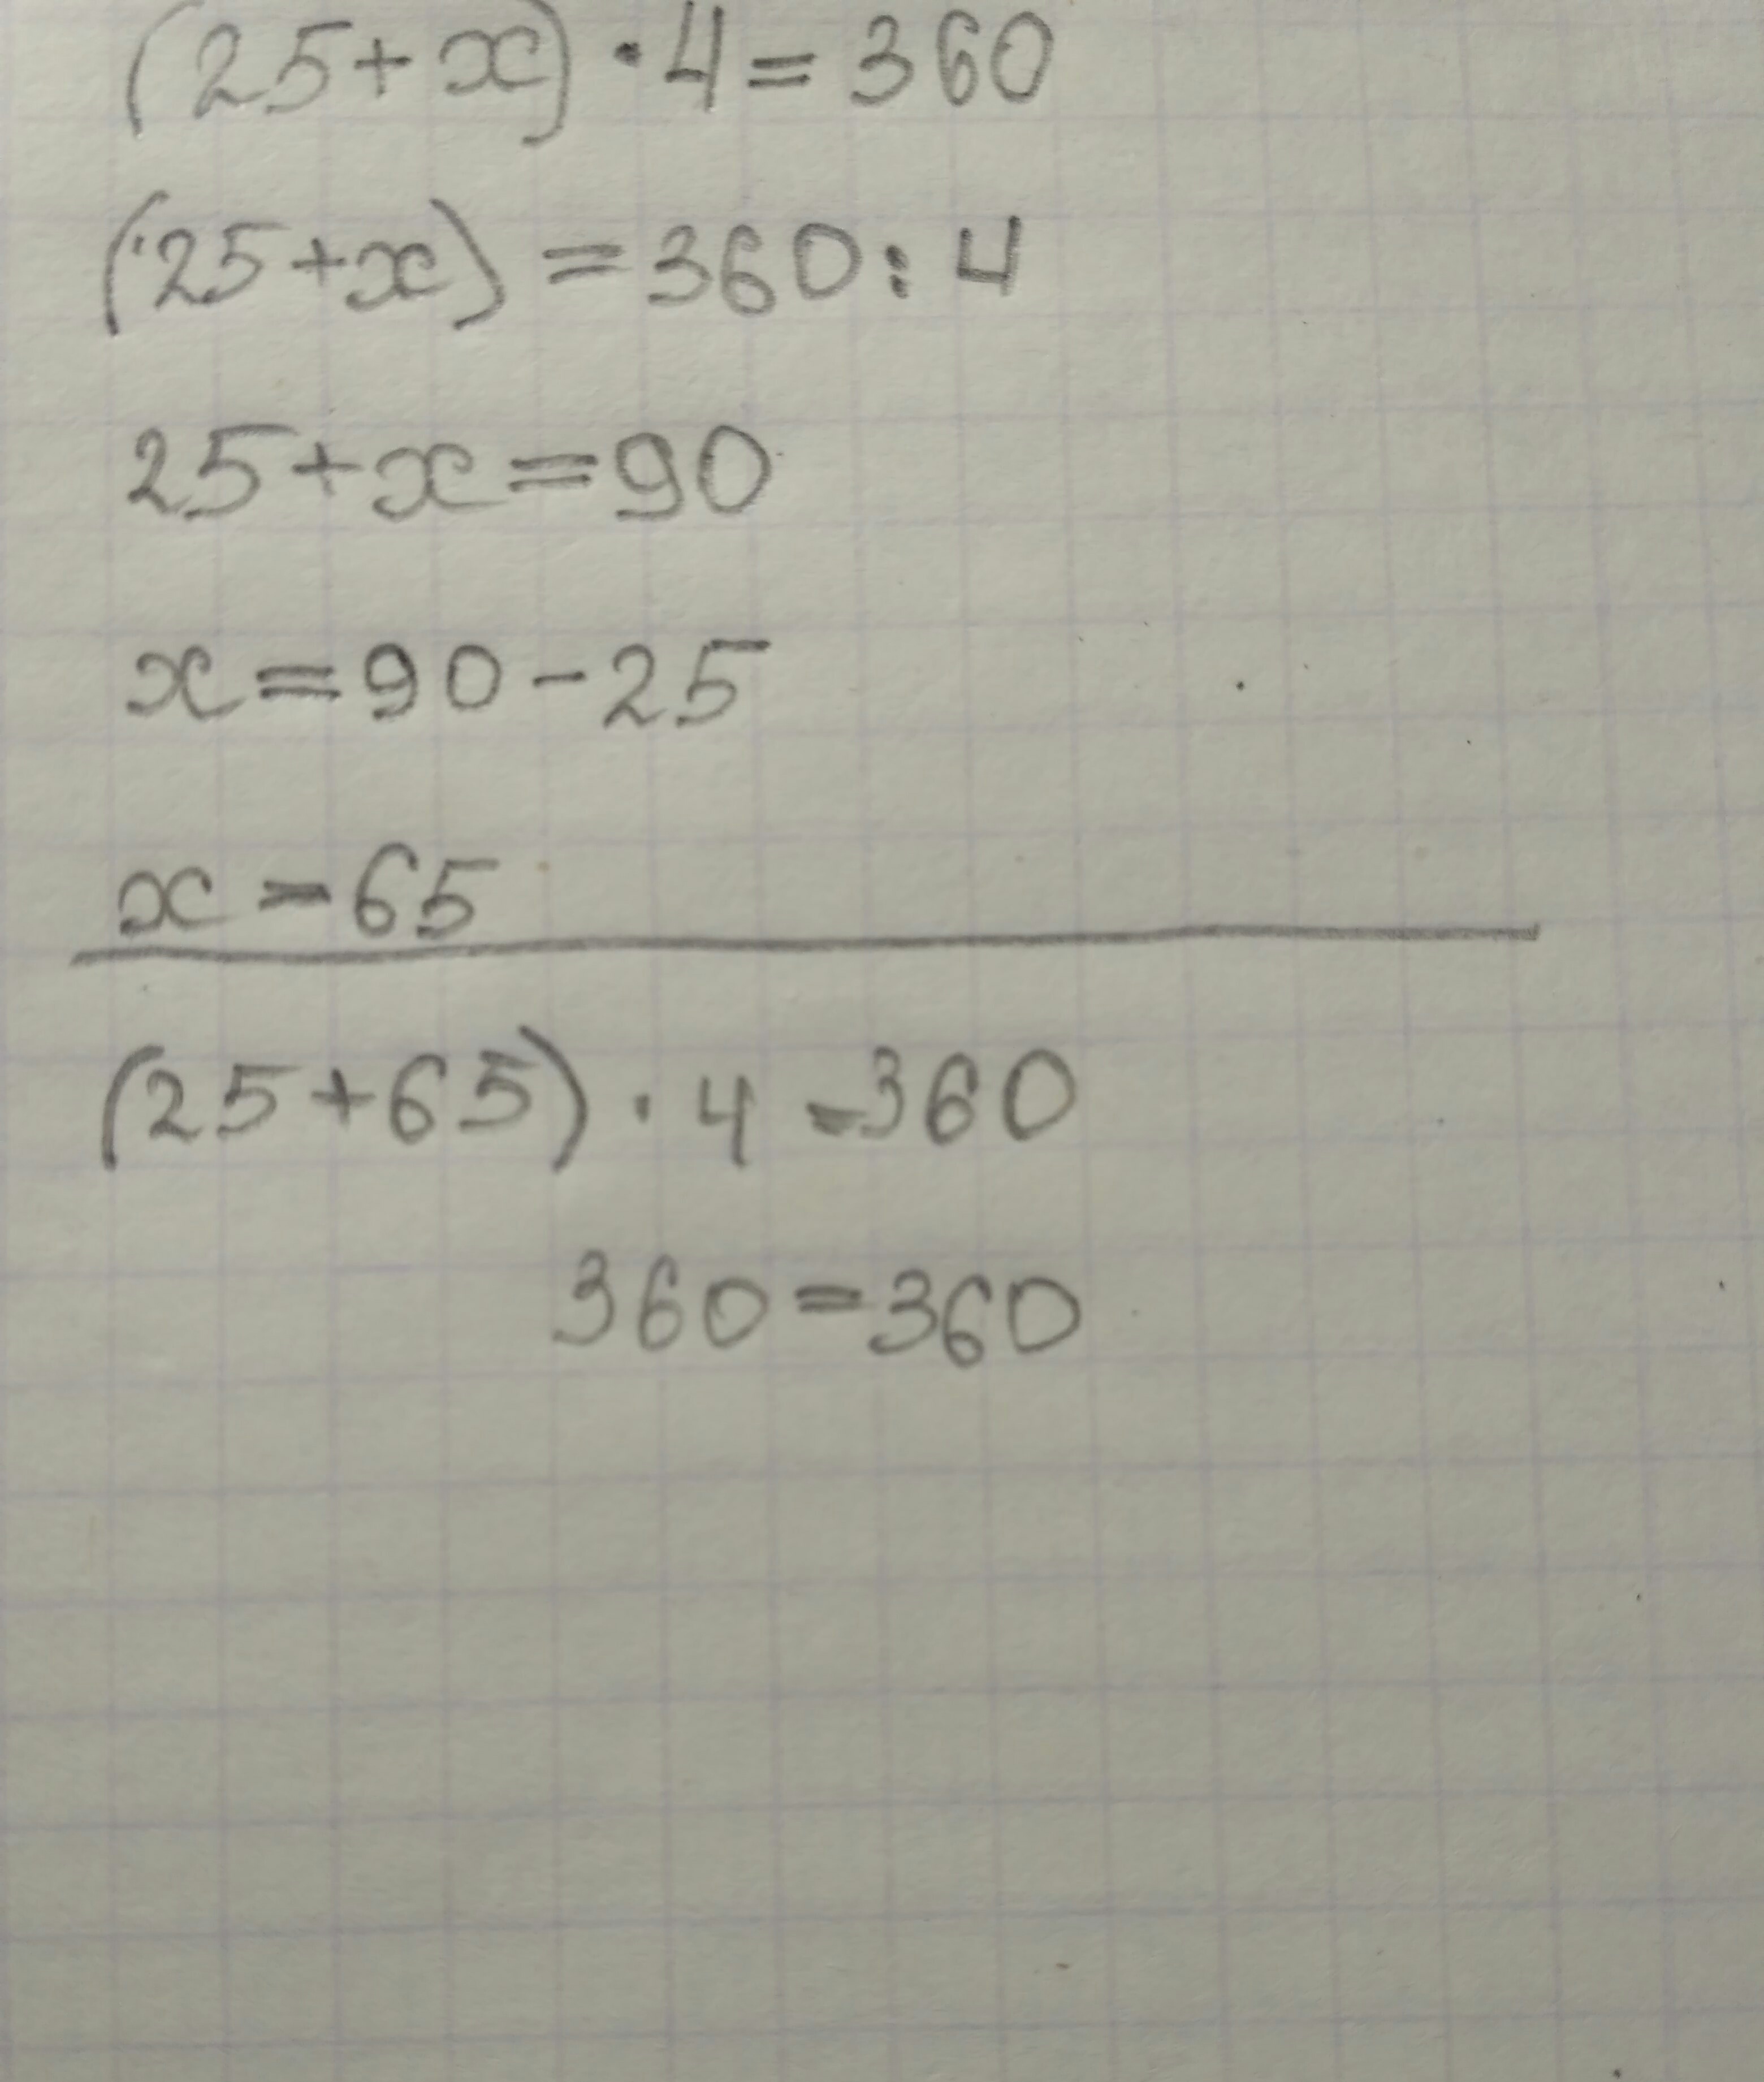 (25+x)·4=360
(25+x)=360:4
25+x=90
x=90-25
x=65
(25+65)·4=360
360=360